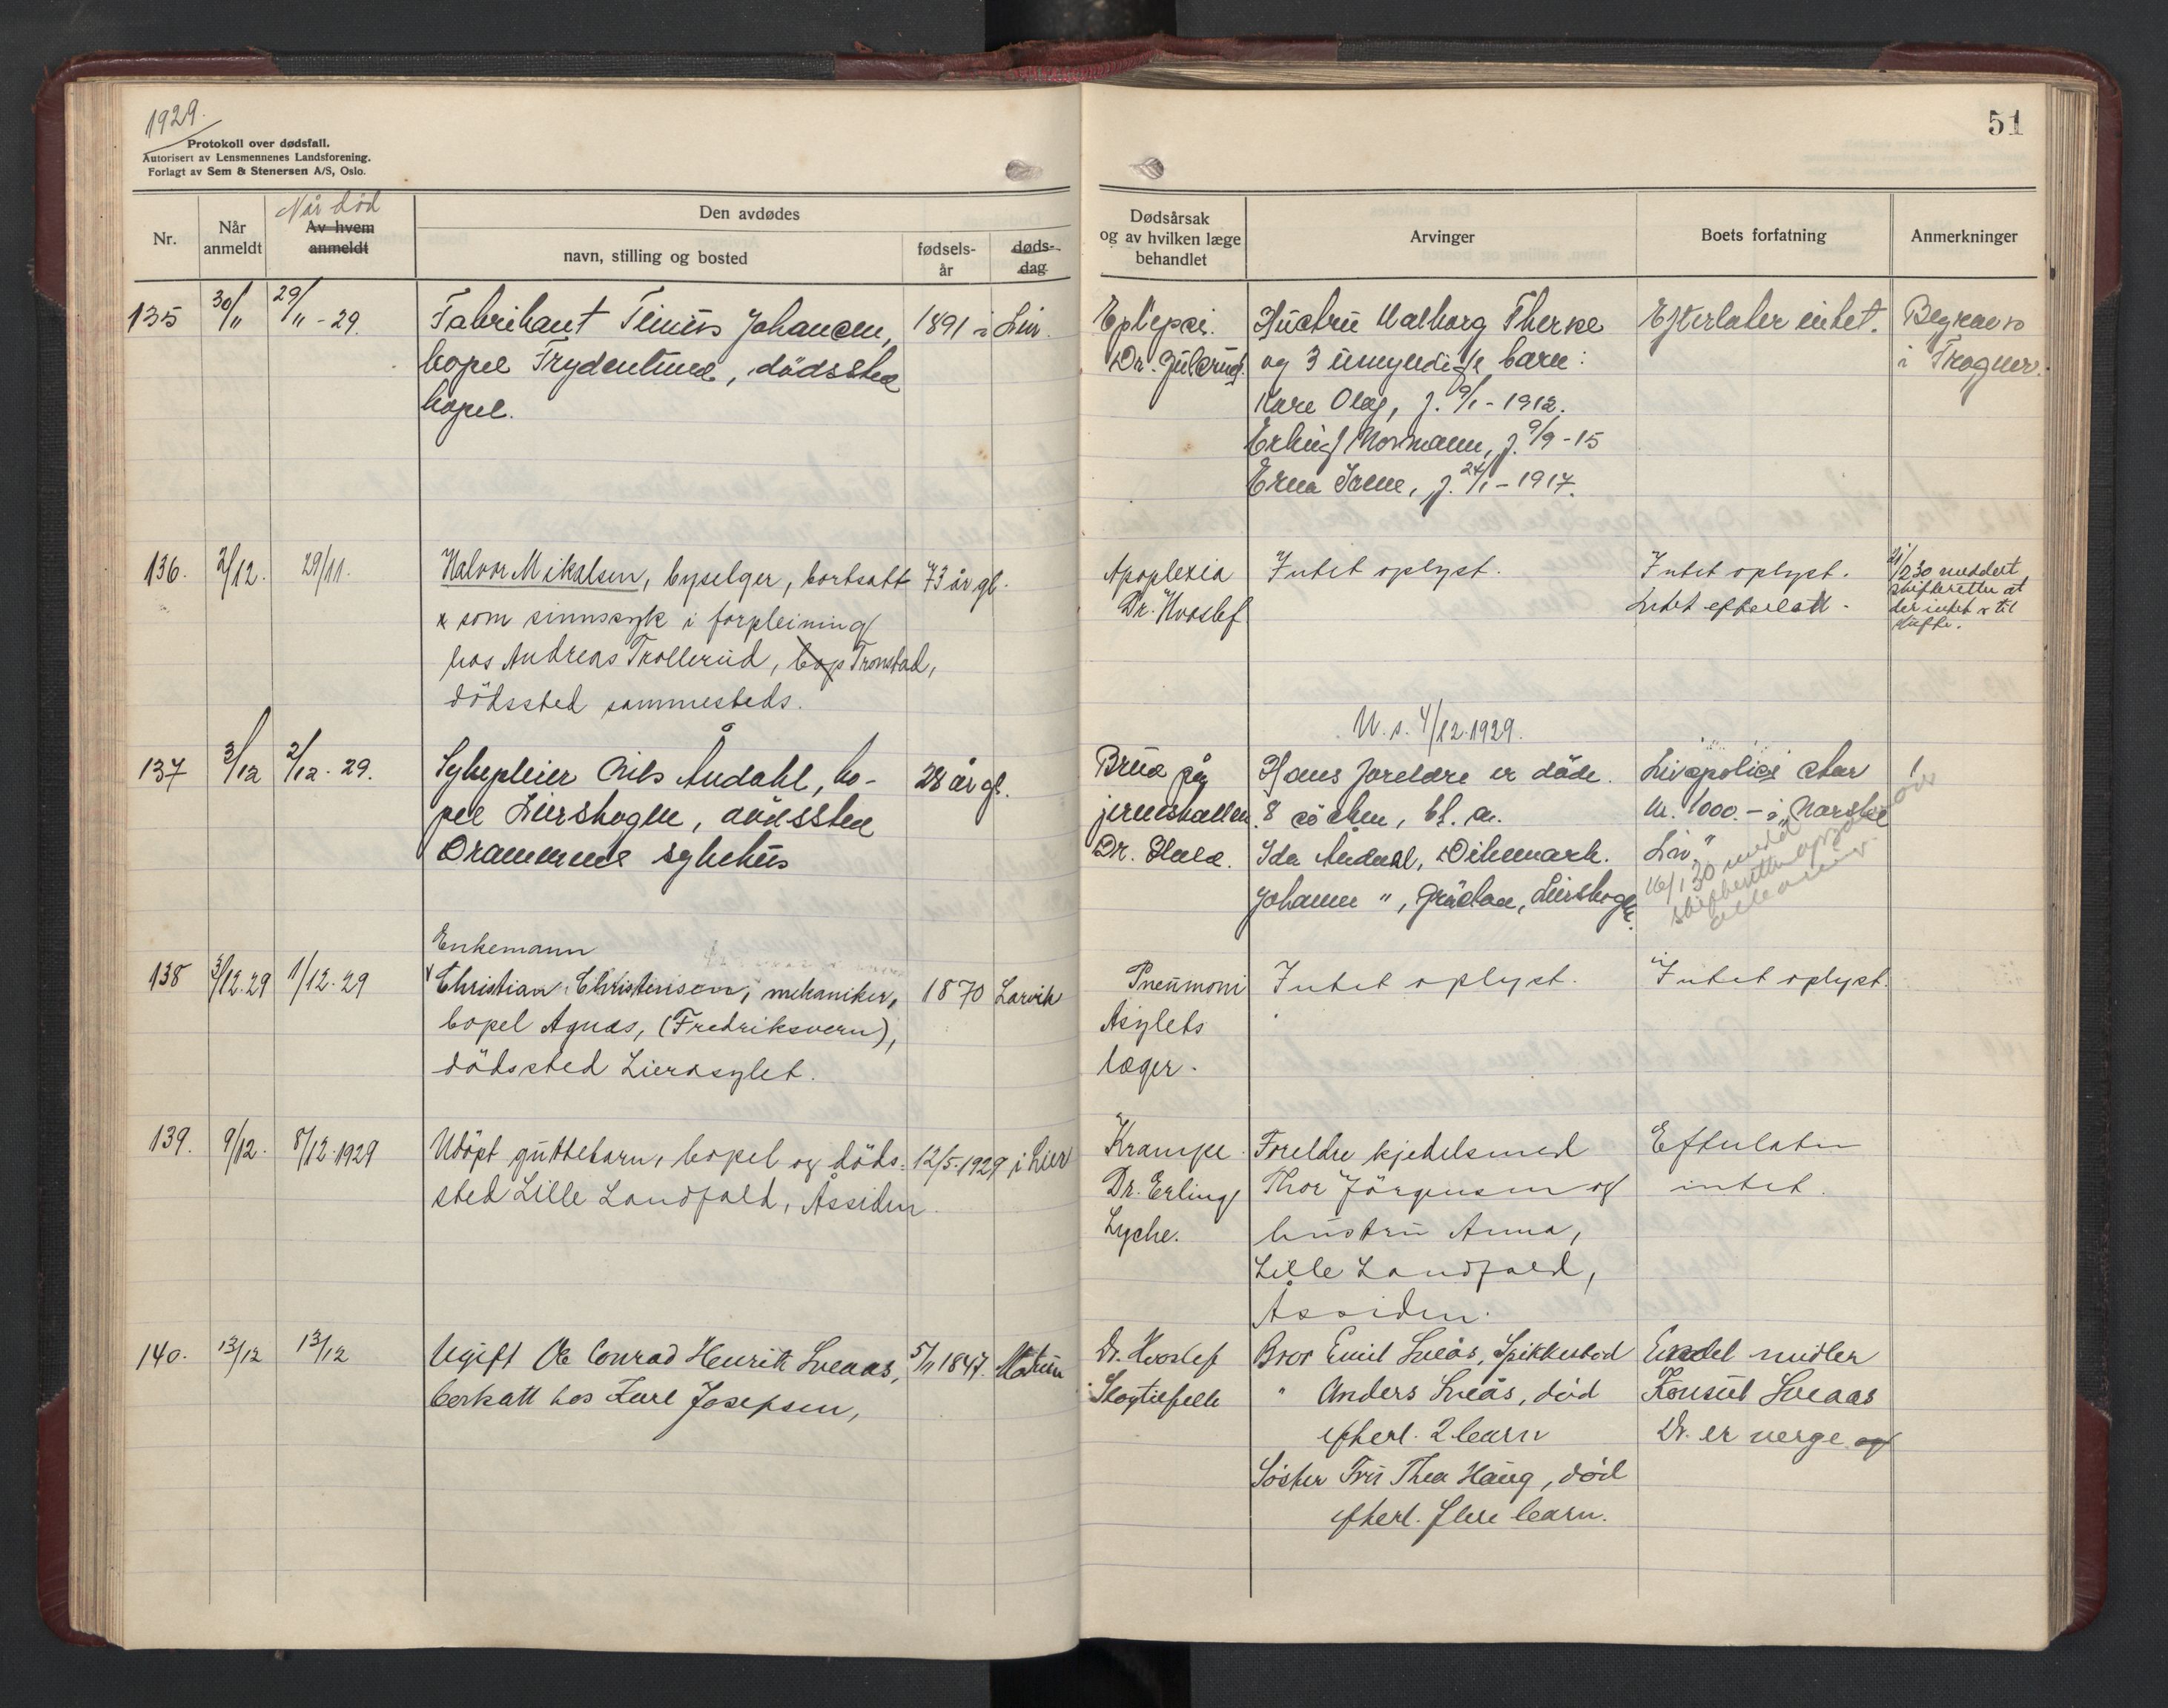 1929.
Protokoll over dødsfall.
Autorisert av Lensmennenes Landsforening.
Forlagt av Sem & Stenersen A/S, Oslo.
51
Nr.
Når anmeldt
Når död
Av hvem anmeldt
Den avdødes
navn, stilling og bosted
fødsels-år
døds-dag
Dødsårsak og av hvilken læge behandlet
Arvinger
Boets forfatning
Anmerkninger
135 30/11 29/11-29. Fabrikant Johansen, 1891 i Lier.
bopel Frydenlund, dödssted
bopel.
Epilepsi.
Dr. Gulsrud.
Hustru Valborg Therese
og 3 umyndige barn:
Kåre Olaf, f. 9/1-1912.
Erling Normann, f. 9/9-15
Erna Janne, f. 24/1-1917.
Efterlater intet.
Begraves
i Frogner.
136. 2/12. 29/11. Halvor Mikalsen, byselger, bortsatt 73 år gl.
x som sinnssyk i forpleining
hos Andreas Trollerud, bop Tronstad,
dödssted sammesteds.
Apoplexia
Dr. Hvoslef
Intet oplyst.
Intet oplyst.
Intet efterlatt.
2/1 30 meddelt
skifteretten at
der intet er til
skifte.
137 3/12 2/12-29. Sykepleier Nils Åudahl, bo- 28 år gl.
pel Lierskogen, dödssted
Drammens sykehus
Brudd på
hjerneskallen.
Dr.
U. s. 4/12.1929.
Hans foreldre er döde.
8 sösken, bl. a.
Ida Åudahl, Dikemark.
Johanne ", Lierskogen.
Livspolise stor
kr. 1000.- i "Norske
Liv"
16/1 30 medd
skifteretten
138 3/12.29 1/12-29
Enkemann
Christian Christensen, mekaniker, 1870 Larvik
bopel Agnes, (Fredriksvern),
dödssted Lierasylet.
Pneumoni
Asylets
læger.
Intet oplyst.
Intet oplyst.
139. 9/12. 8/12-1929 Udöpt guttebarn, bopel og döds- 12/5-1929 i Lier
sted Lille Landfald, Åssiden.
Krampe
Dr. Erling
Lyche.
Foreldre kjedelsmed
Thor Jörgensen og
hustru Anna,
Lille Landfald,
Åssiden.
Efterlater
intet.
140. 13/12 13/12 Ugift Ole Conrad Henrik Sveaas, 5/11 1847. Modum
bortsatt hos Karl Josefsen,
Dr. Hvoslef
Slagtilfelle
Bror Emil Sveås, Spikkestad
" Anders Sveås, död
efterl. 2 barn
Söster Fru Thea Haug, död
efterl. flere barn.
Endel midler
Konsul Sveaas
Dr. er verge og